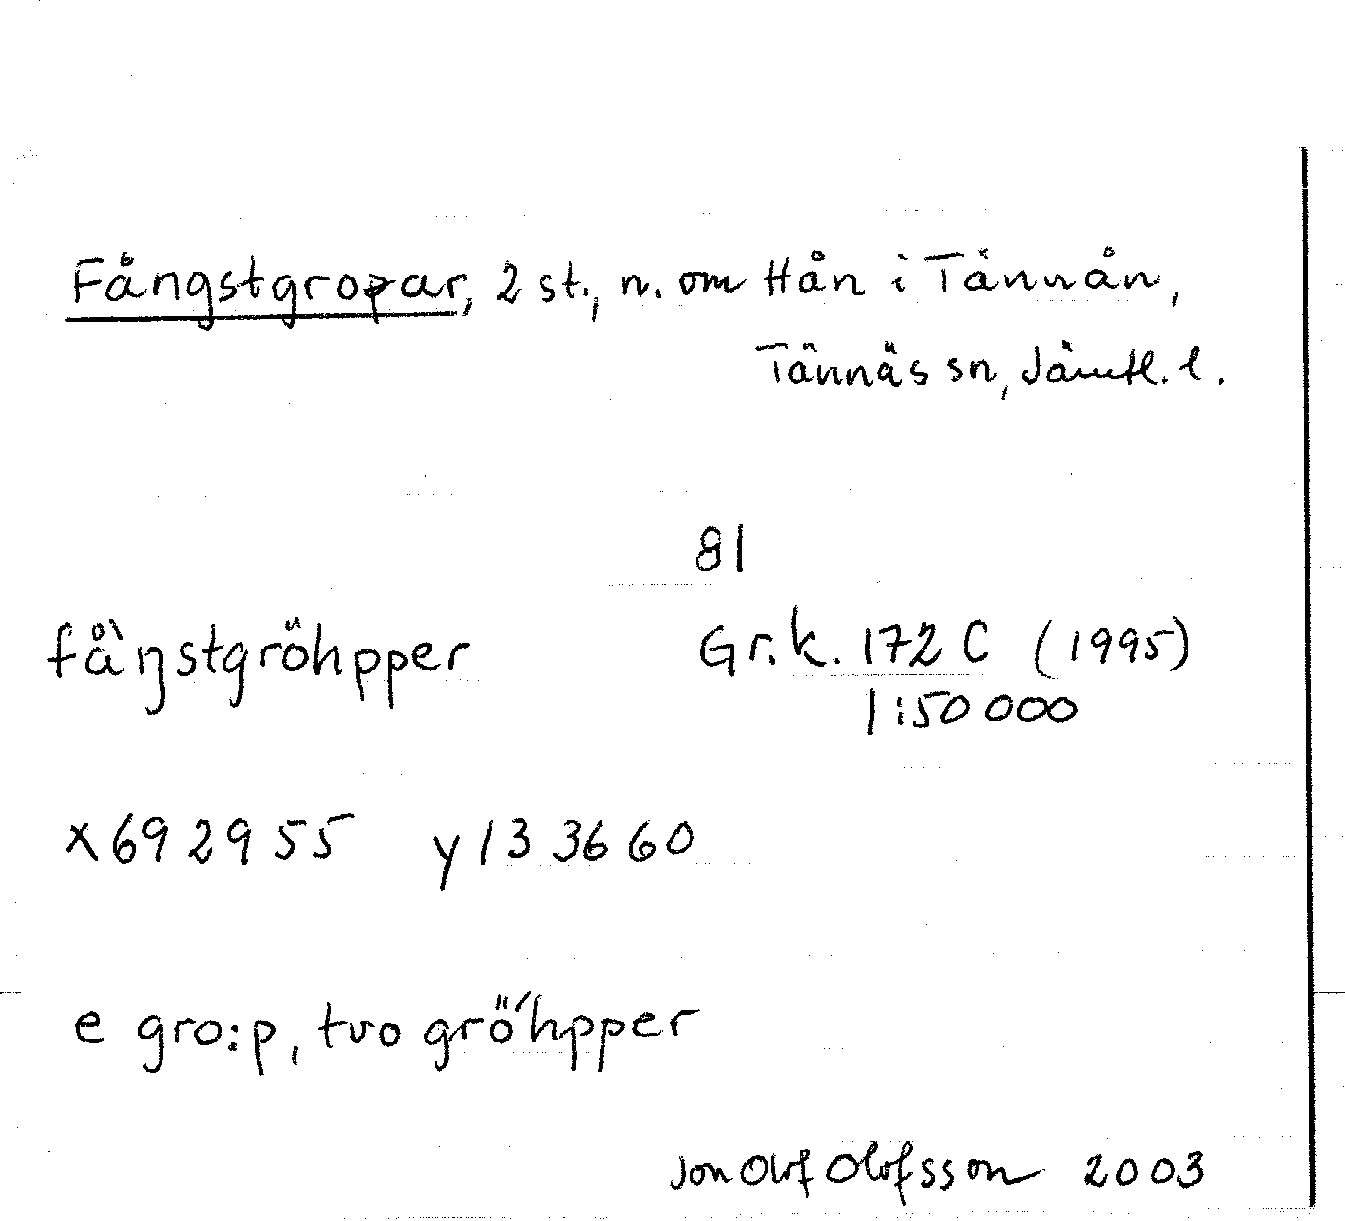 Fångstgropar, 2 st., n. om Hån i Tännån,
Tännäs sn, Jämtl. l.
81
få̀ŋstgröhpper Gr.k. 172 C (1995)
1:50 000
x692955 y133660
e gro:p, tvo grö́hpper
Jon Olof Olofsson 2003